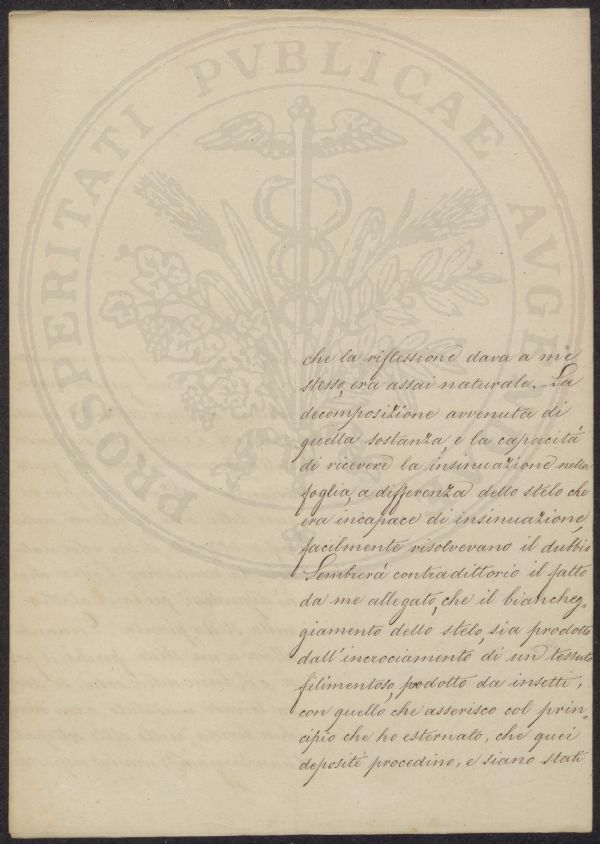 PROSPERITATI PVBLICAE AVGE
che la riflessione dava a me
stesso, era assai naturale. La
decomposizione avvenuta di
quella sostanza, e la capacità
di ricevere la insinuazione nella
foglia, a differenza dello stelo che
era incapace di insinuazione,
facilmente risolvevano il dubbio
Sembrerà contradittorio il fatto
da me allegato, che il biancheg=
giamento dello stelo, sia prodotto
dall'incrociamento di un tessuto
filimentoso, podotto da insetti,
con quello, che asserisco col prin=
cipio che ho esternato, che quei
depositi procedino, e siano stati